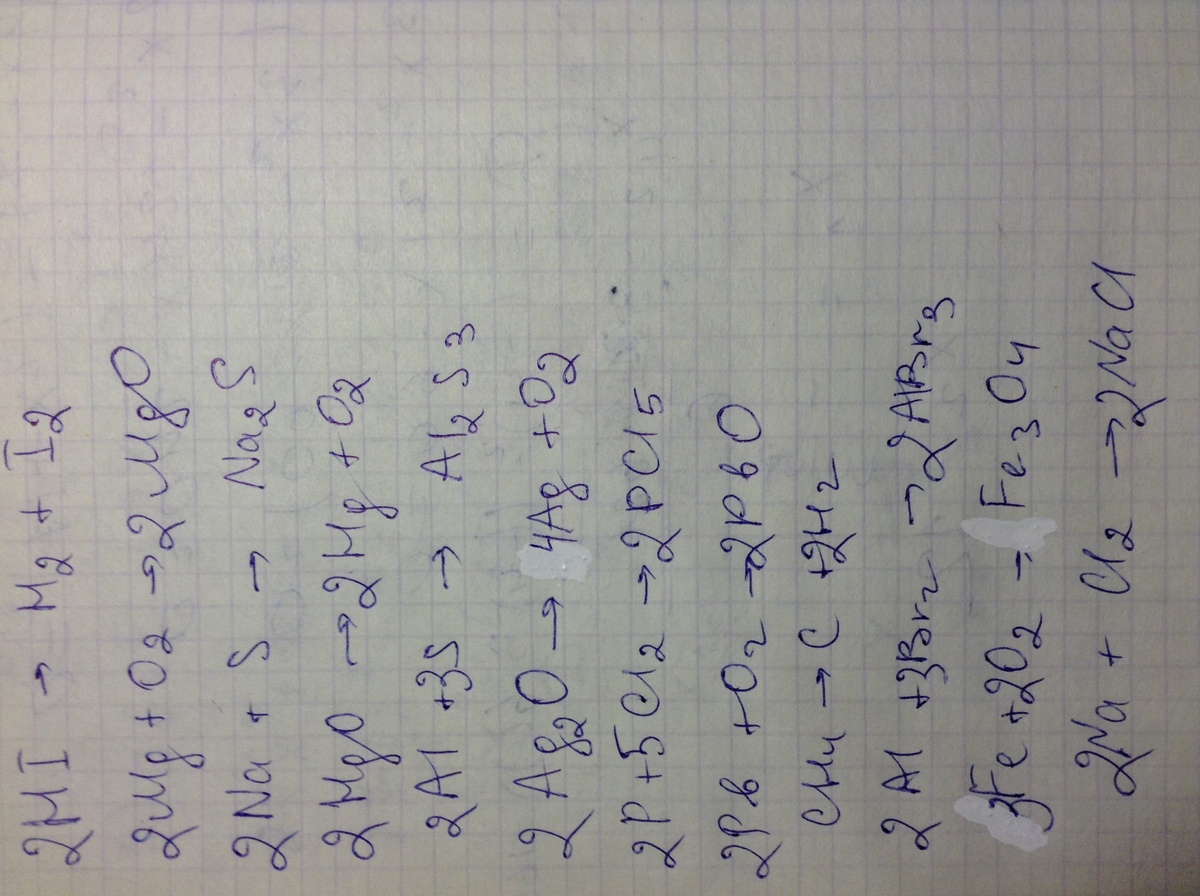 2HI → H₂ + I₂
2Mg + O₂ → 2MgO
2Na + S → Na₂S
2HgO → 2Hg + O₂
2Al + 3S → Al₂S₃
2Ag₂O → 4Ag + O₂
2P + 5Cl₂ → 2PCl₅
2Pb + O₂ → 2PbO
CH₄ → C + 2H₂
2Al + 3Br₂ → 2AlBr₃
3Fe + 2O₂ → Fe₃O₄
2Na + Cl₂ → 2NaCl